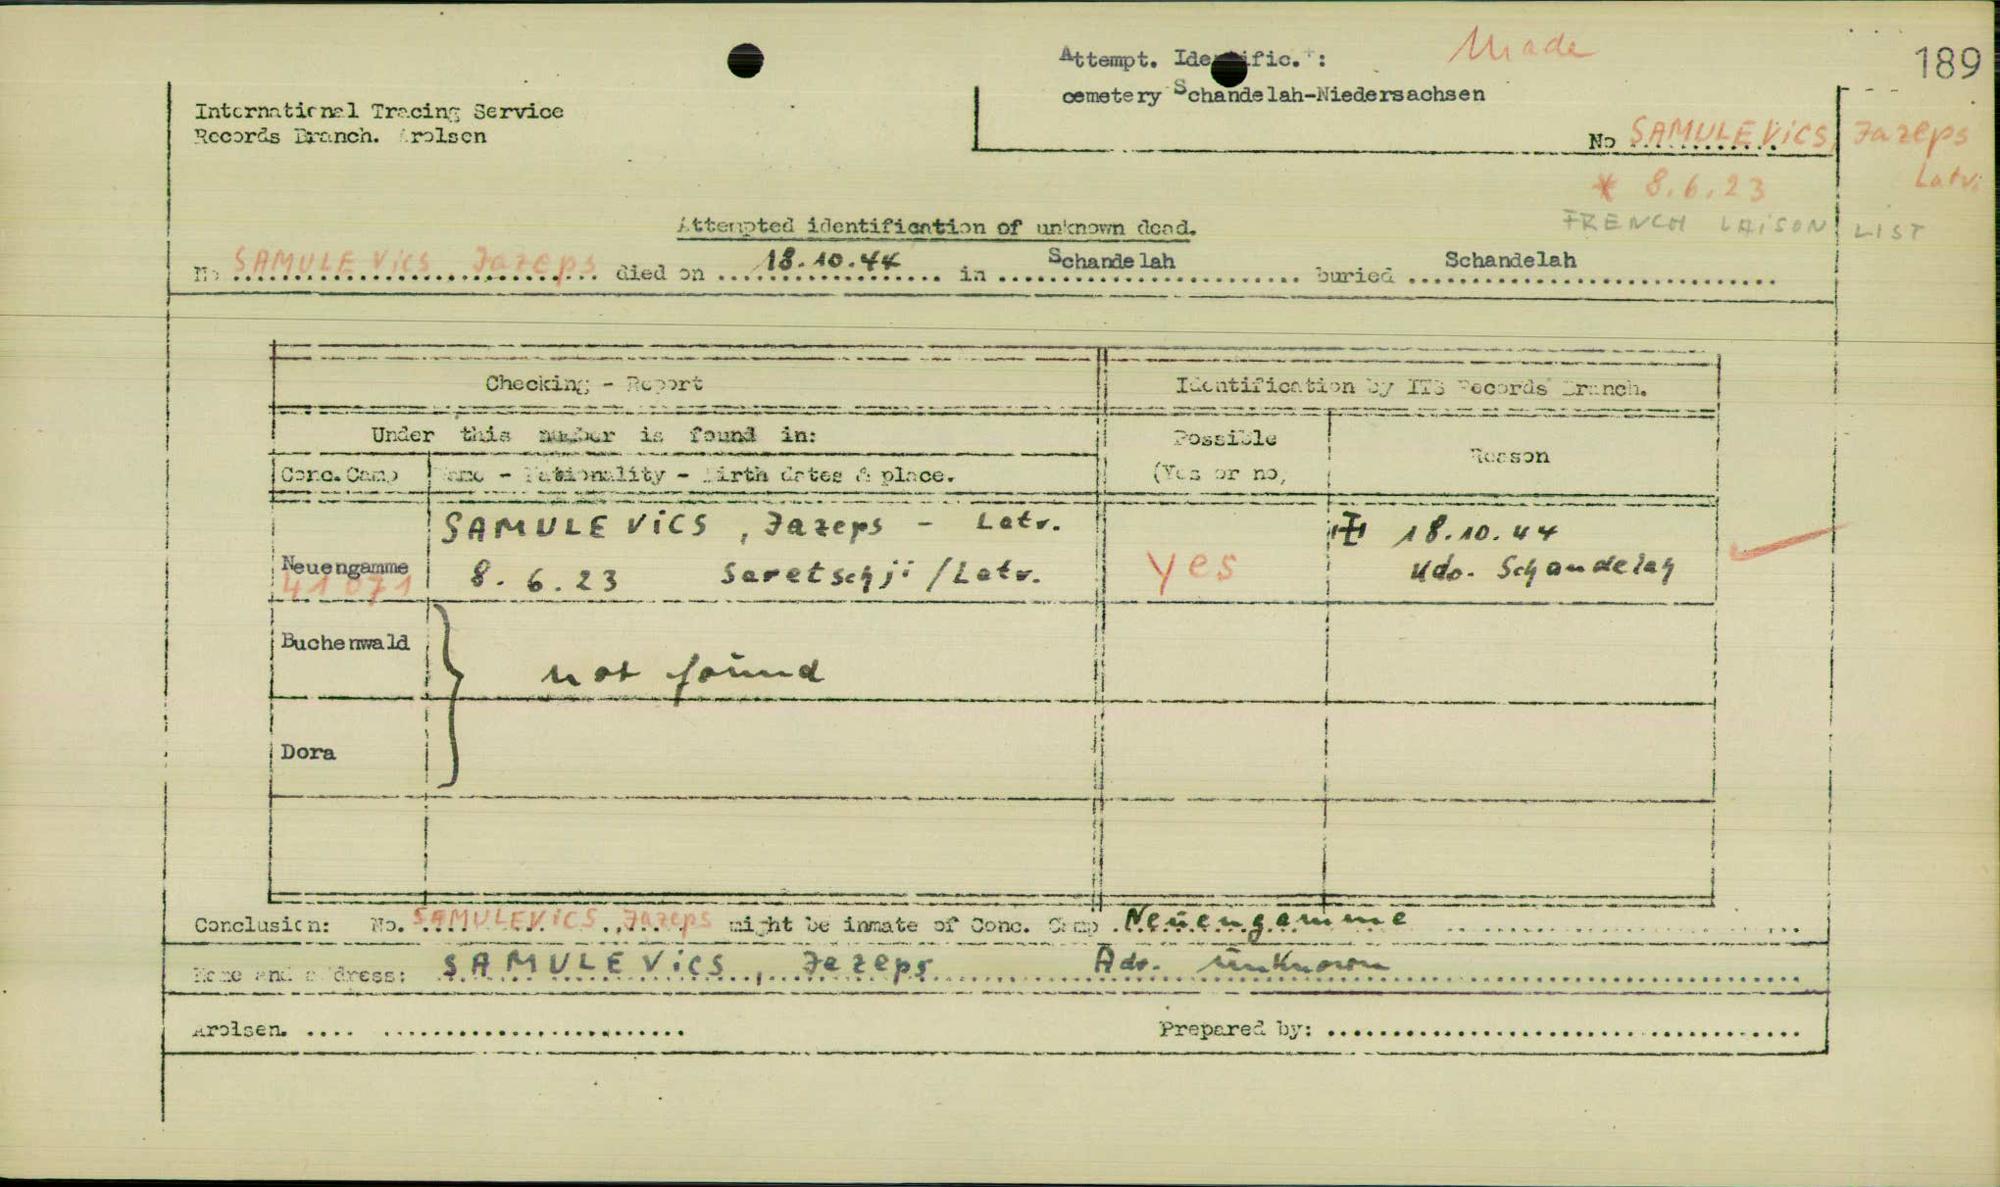 Attempt. Identific.+: Made
189
cemetery Schandelah-Niedersachsen
International Tracing Service
Records Branch. Arolsen
No SAMULEVICS, Jazeps
* 8.6.23 Latv.
FRENCH LAISON LIST
Attempted identification of unknown dead.
No SAMULEVICS, Jazeps died on 18.10.44 in Schandelah buried Schandelah
Checking - Report
Identification by ITS Records Branch.
Under this number is found in:
Possible
(Yes or no)
Reason
Conc.Camp
Name - Nationality - Birth dates & place.
SAMULEVICS, Jazeps - Latv.
Neuengamme
41 071
8. 6. 23 Saretschji/Latv.
yes
18.10.44
Kdo. Schandelah
Buchenwald
not found
Dora
Conclusion: No. SAMULEVICS, Jazeps might be inmate of Conc. Camp Neuengamme
Name and address: SAMULEVICS, Jezeps Adr. unknown
Arolsen. .... ........................
Prepared by: ....................................